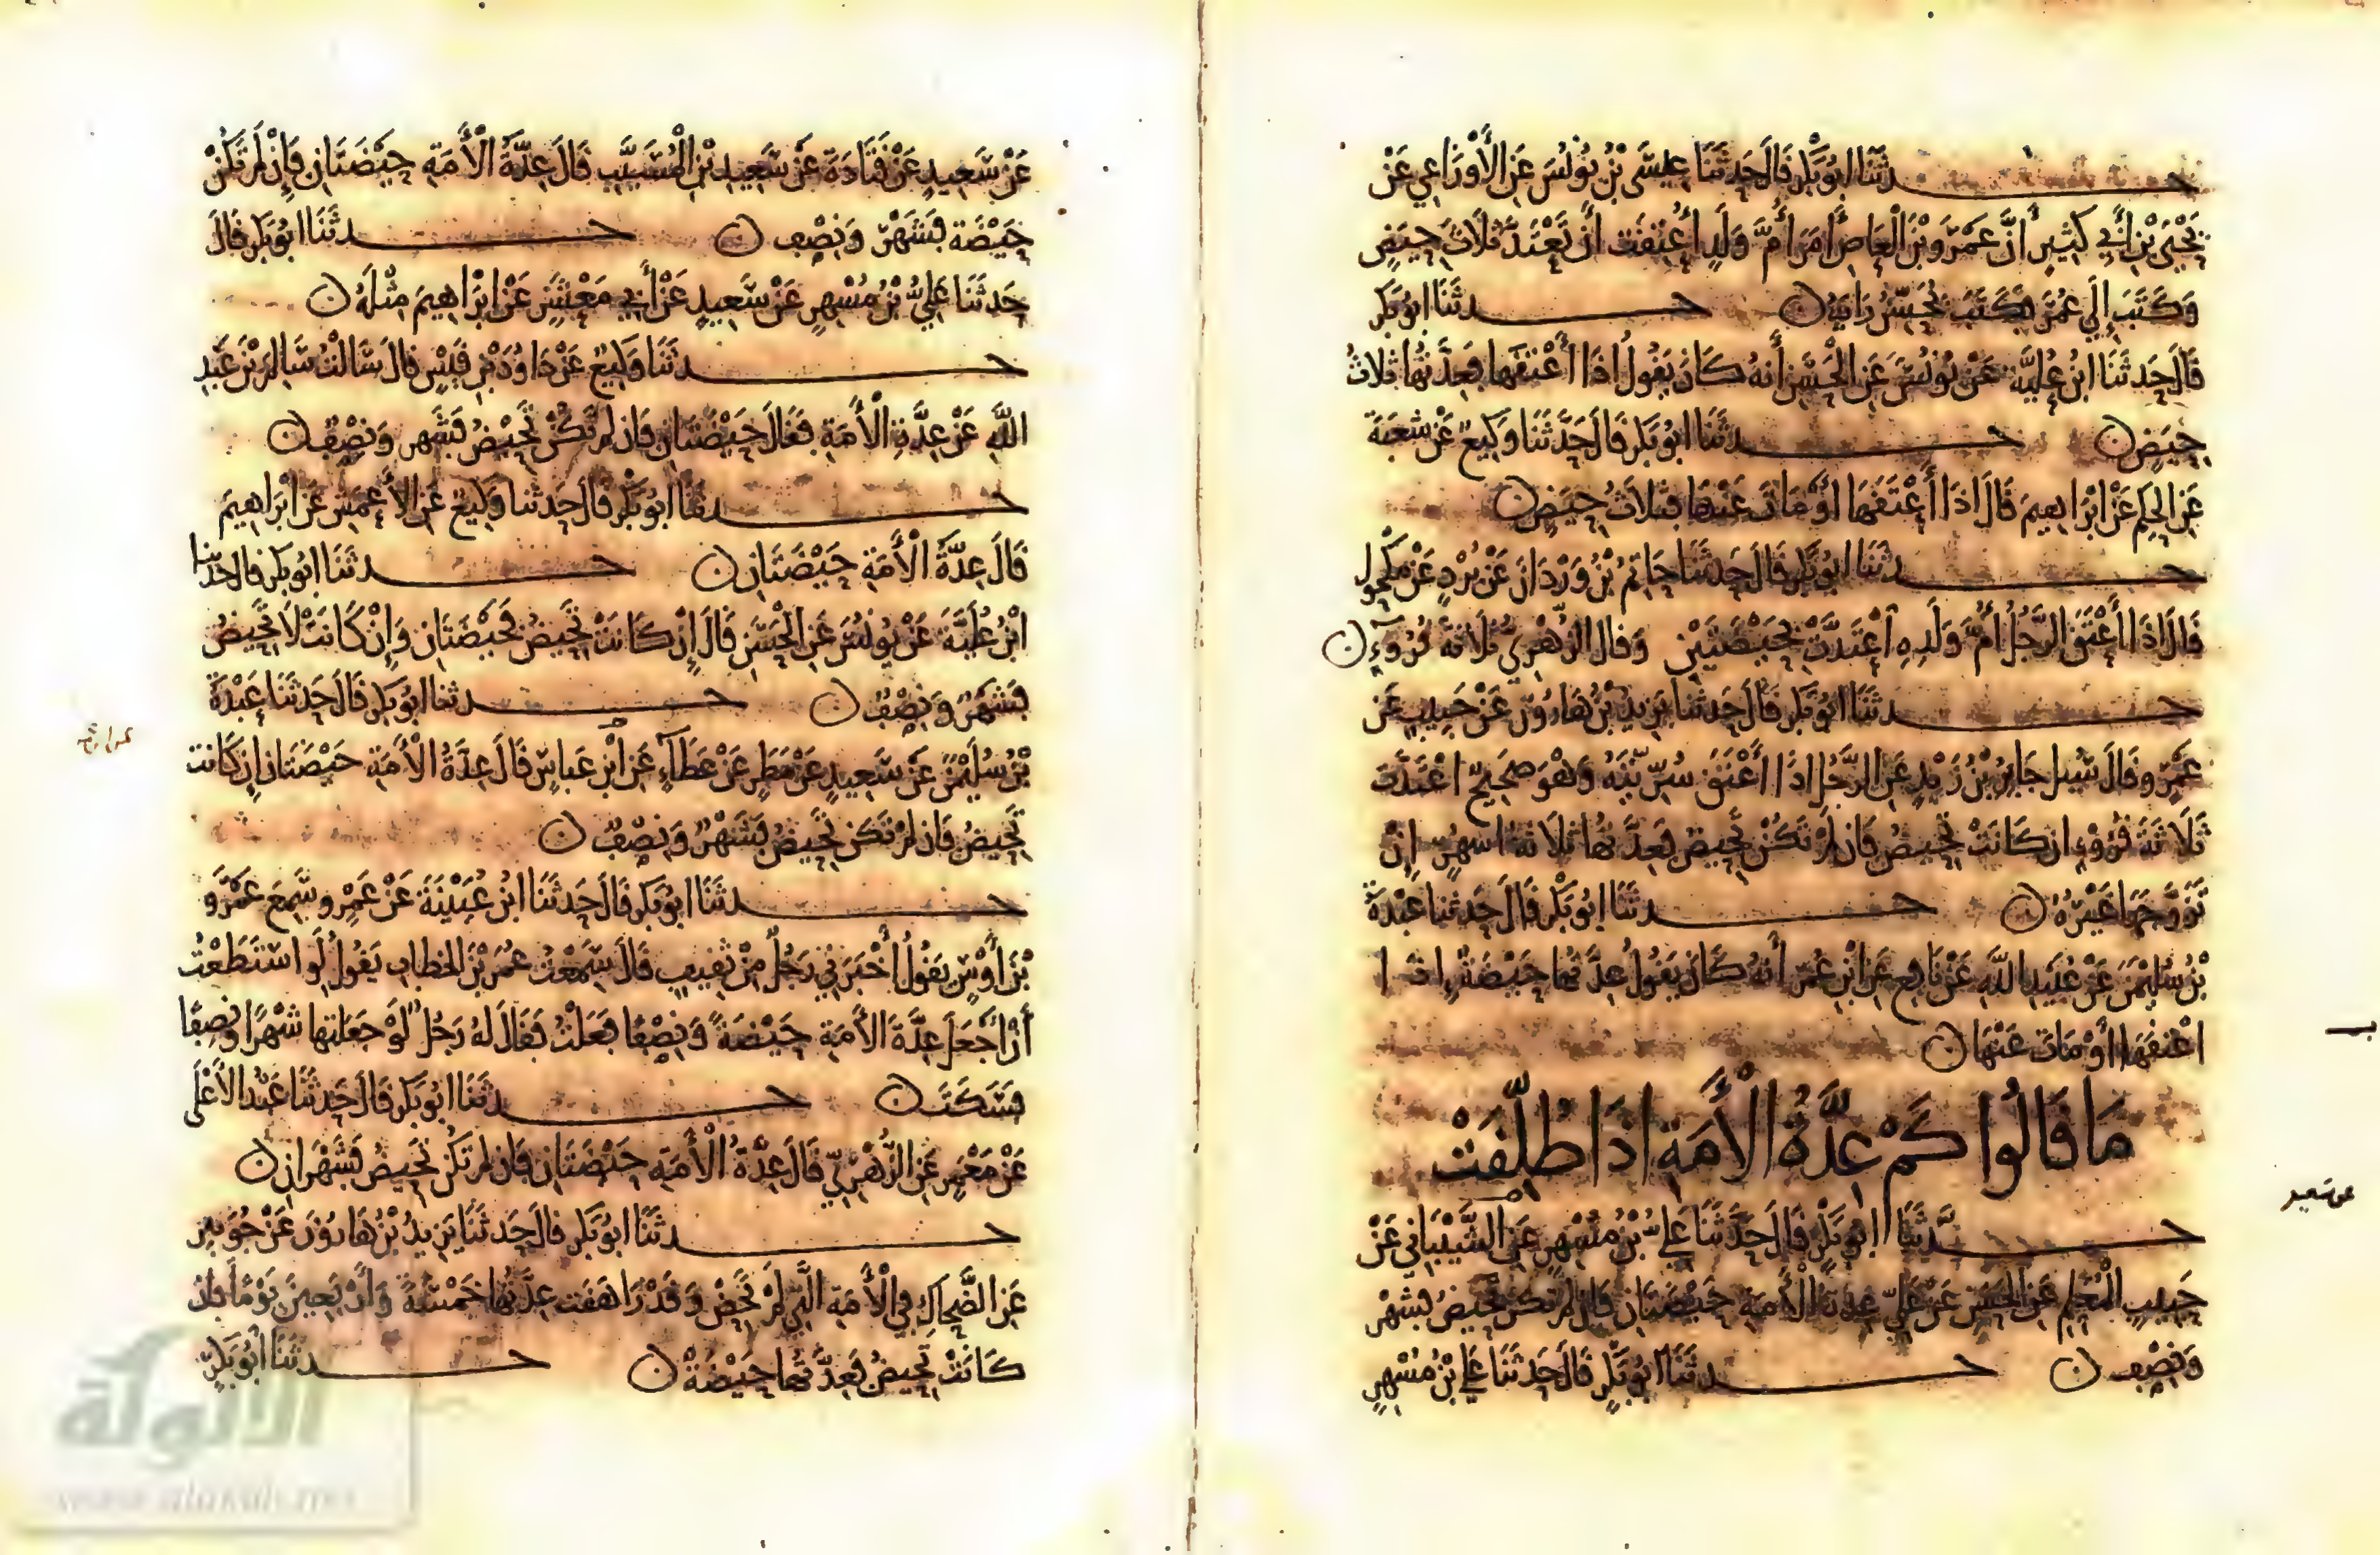 حدثنا ابو بكر قال حدثنا عيسى بن يونس عن الأوزاعي عن
يحيى بن أبي كثير أن عمرو بن العاص أمر أم ولد أعتقت أن تعتد ثلاث حيض
وكتب إلى عمر فكتب بحسن رايه
حدثنا ابو بكر
قال حدثنا ابن علية عن يونس عن الحسن أنه كان يقول اذا أعتقها فعدتها ثلاث
حيض
حدثنا ابو بكر قال حدثنا وكيع عن شعبة
عن الحكم عن ابراهيم قال اذا أعتقها أو مات عنها فثلاث حيض
حدثنا ابو بكر قال حدثنا حاتم بن وردان عن برد عن مكحول
قال اذا أعتق الرجل أم ولده اعتدت بحيضتين وقال الزهري ثلاثة قروء
حدثنا ابو بكر قال حدثنا يزيد بن هارون عن حبيب عن
عمرو قال سيل جابر بن زيد عن الرجل اذا أعتق سريته وهو صحيح اعتدت
ثلاثة قروء ان كانت تحيض فان لم تكن تحيض فعدتها ثلاثة اشهر إن
تزوجها غيره
حدثنا ابو بكر قال حدثنا عبدة
بن سليمن عن عبيد الله عن نافع عن ابن عمر أنه كان يقول عدتها حيضة اذا
اعتقها أو مات عنها
ما قالوا كم عدة الأمة اذا طلقت
حدثنا ابو بكر قال حدثنا علي بن مسهر عن الشيباني عن
حبيب المعلم عن الحسن عن علي عدة الأمة حيضتان فان لم تكن تحيض فشهر
ونصف
حدثنا ابو بكر قال حدثنا علي بن مسهر
عن سعيد
عن سعيد عن قتادة عن سعيد بن المسيب قال عدة الأمة حيضتان فإن لم تكن
حيضة فشهر ونصف
حدثنا ابو بكر قال
حدثنا علي بن مسهر عن سعيد عن أبي معشر عن ابراهيم مثله
حدثنا وكيع عن داود بن قيس قال سالت سالم بن عبد
الله عن عدة الأمة فقال حيضتان فان لم تكن تحيض فشهر ونصف
حدثنا ابو بكر قال حدثنا وكيع عن الأعمش عن ابراهيم
قال عدة الأمة حيضتان
حدثنا ابو بكر قال حدثنا
ابن علية عن يونس عن الحسن قال إن كانت تحيض فحيضتان وإن كانت لا تحيض
فشهر ونصف
حدثنا ابو بكر قال حدثنا عبدة
بن سليمن عن سعيد عن مطر عن عطاء عن ابن عباس قال عدة الأمة حيضتان ان كانت
تحيض فان لم تكن تحيض فشهر ونصف
حدثنا ابو بكر قال حدثنا ابن عيينة عن عمرو سمع عمرو
بن أوس يقول أخبرني رجل من ثقيف قال سمعت عمر بن الخطاب يقول لو استطعت
أن أجعل عدة الأمة حيضة ونصفا فعلت فقال له رجل لو جعلتها شهرا ونصفا
فسكت
حدثنا ابو بكر قال حدثنا عبد الأعلى
عن معمر عن الزهري قال عدة الأمة حيضتان فان لم تكن تحيض فشهران
حدثنا ابو بكر قال حدثنا يزيد بن هارون عن جويبر
عن الضحاك في الأمة التي لم تحض وقد راهقت عدتها خمسة وأربعين يوما فان
كانت تحيض فعدتها حيضة
حدثنا ابو بكر
الألوكة
www.alukah.net